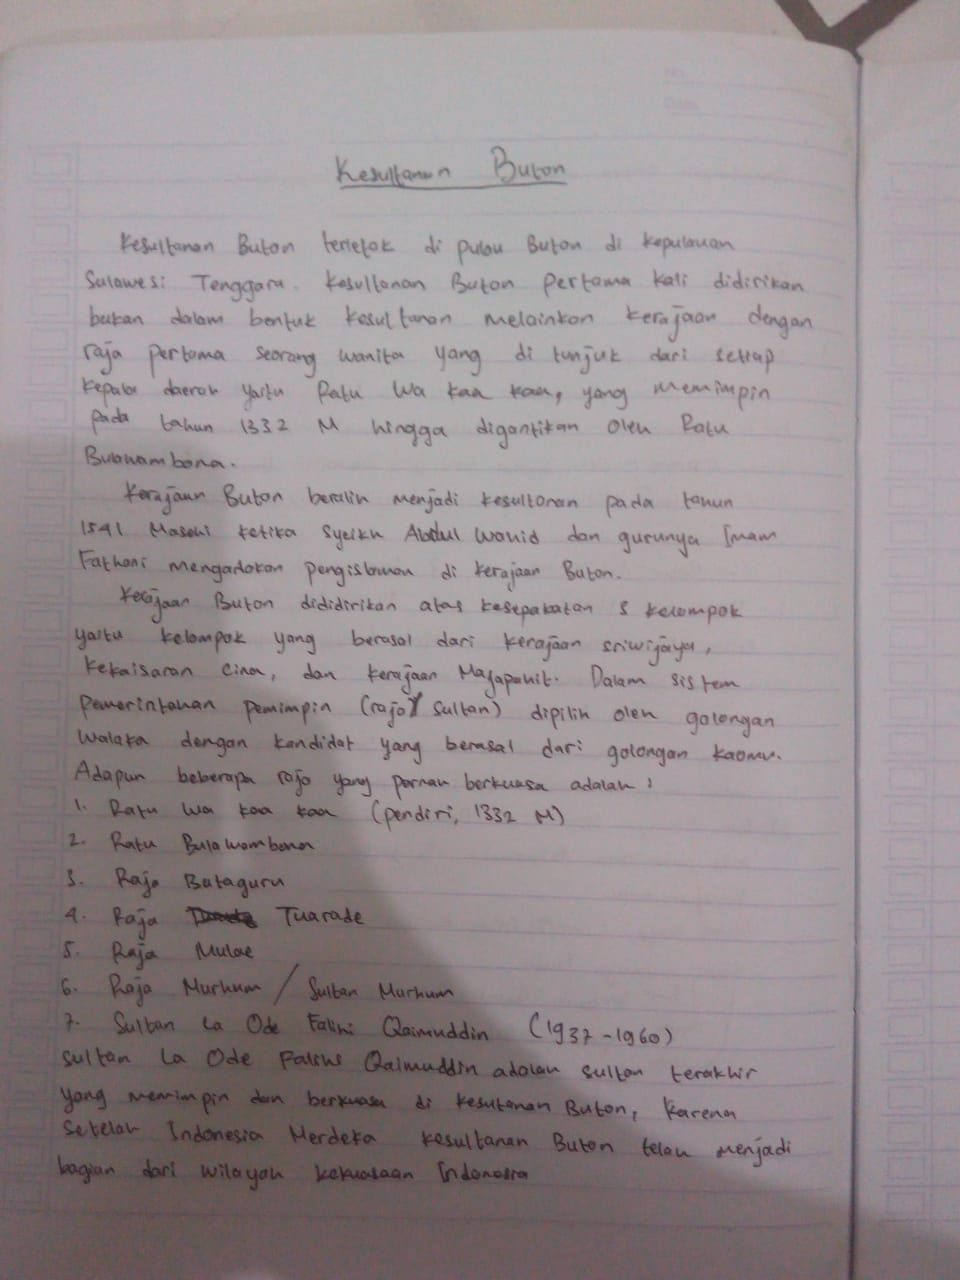 Kesultanan Buton
Kesultanan Buton terletak di pulau Buton di kepulauan
Sulawesi Tenggara. Kesultanan Buton pertama kali didirikan
bukan dalam bentuk kesultanan melainkan kerajaan dengan
raja pertama seorang wanita yang di tunjuk dari setiap
kepala daerah yaitu Ratu Wa kaa kaa, yang memimpin
pada tahun 1332 M hingga digantikan oleh Ratu
Bulawambona.
Kerajaan Buton beralih menjadi kesultanan pada tahun
1541 Masehi ketika Syeikh Abdul Wahid dan gurunya Imam
Fathani mengadakan pengislaman di kerajaan Buton.
Kerajaan Buton dididirikan atas kesepakatan 3 kelompok
yaitu kelompok yang berasal dari kerajaan sriwijaya,
kekaisaran cina, dan kerajaan Majapahit. Dalam sistem
pemerintahan pemimpin (raja/sultan) dipilih oleh golongan
walaka dengan kandidat yang berasal dari golongan kaomu.
Adapun beberapa raja yang pernah berkuasa adalah :
1. Ratu Wa kaa kaa (pendiri, 1332 M)
2. Ratu Bulawambona
3. Raja Bataguru
4. Raja Tuarade
5. Raja Mulae
6. Raja Murhum / Sultan Murhum
7. Sultan La Ode Falihi Qaimuddin (1937-1960)
sultan La Ode Falihi Qaimuddin adalah sultan terakhir
yang memimpin dan berkuasa di kesutanan Buton, karena
setelah Indonesia Merdeka kesultanan Buton telah menjadi
bagian dari wilayah kekuasaan Indonesia